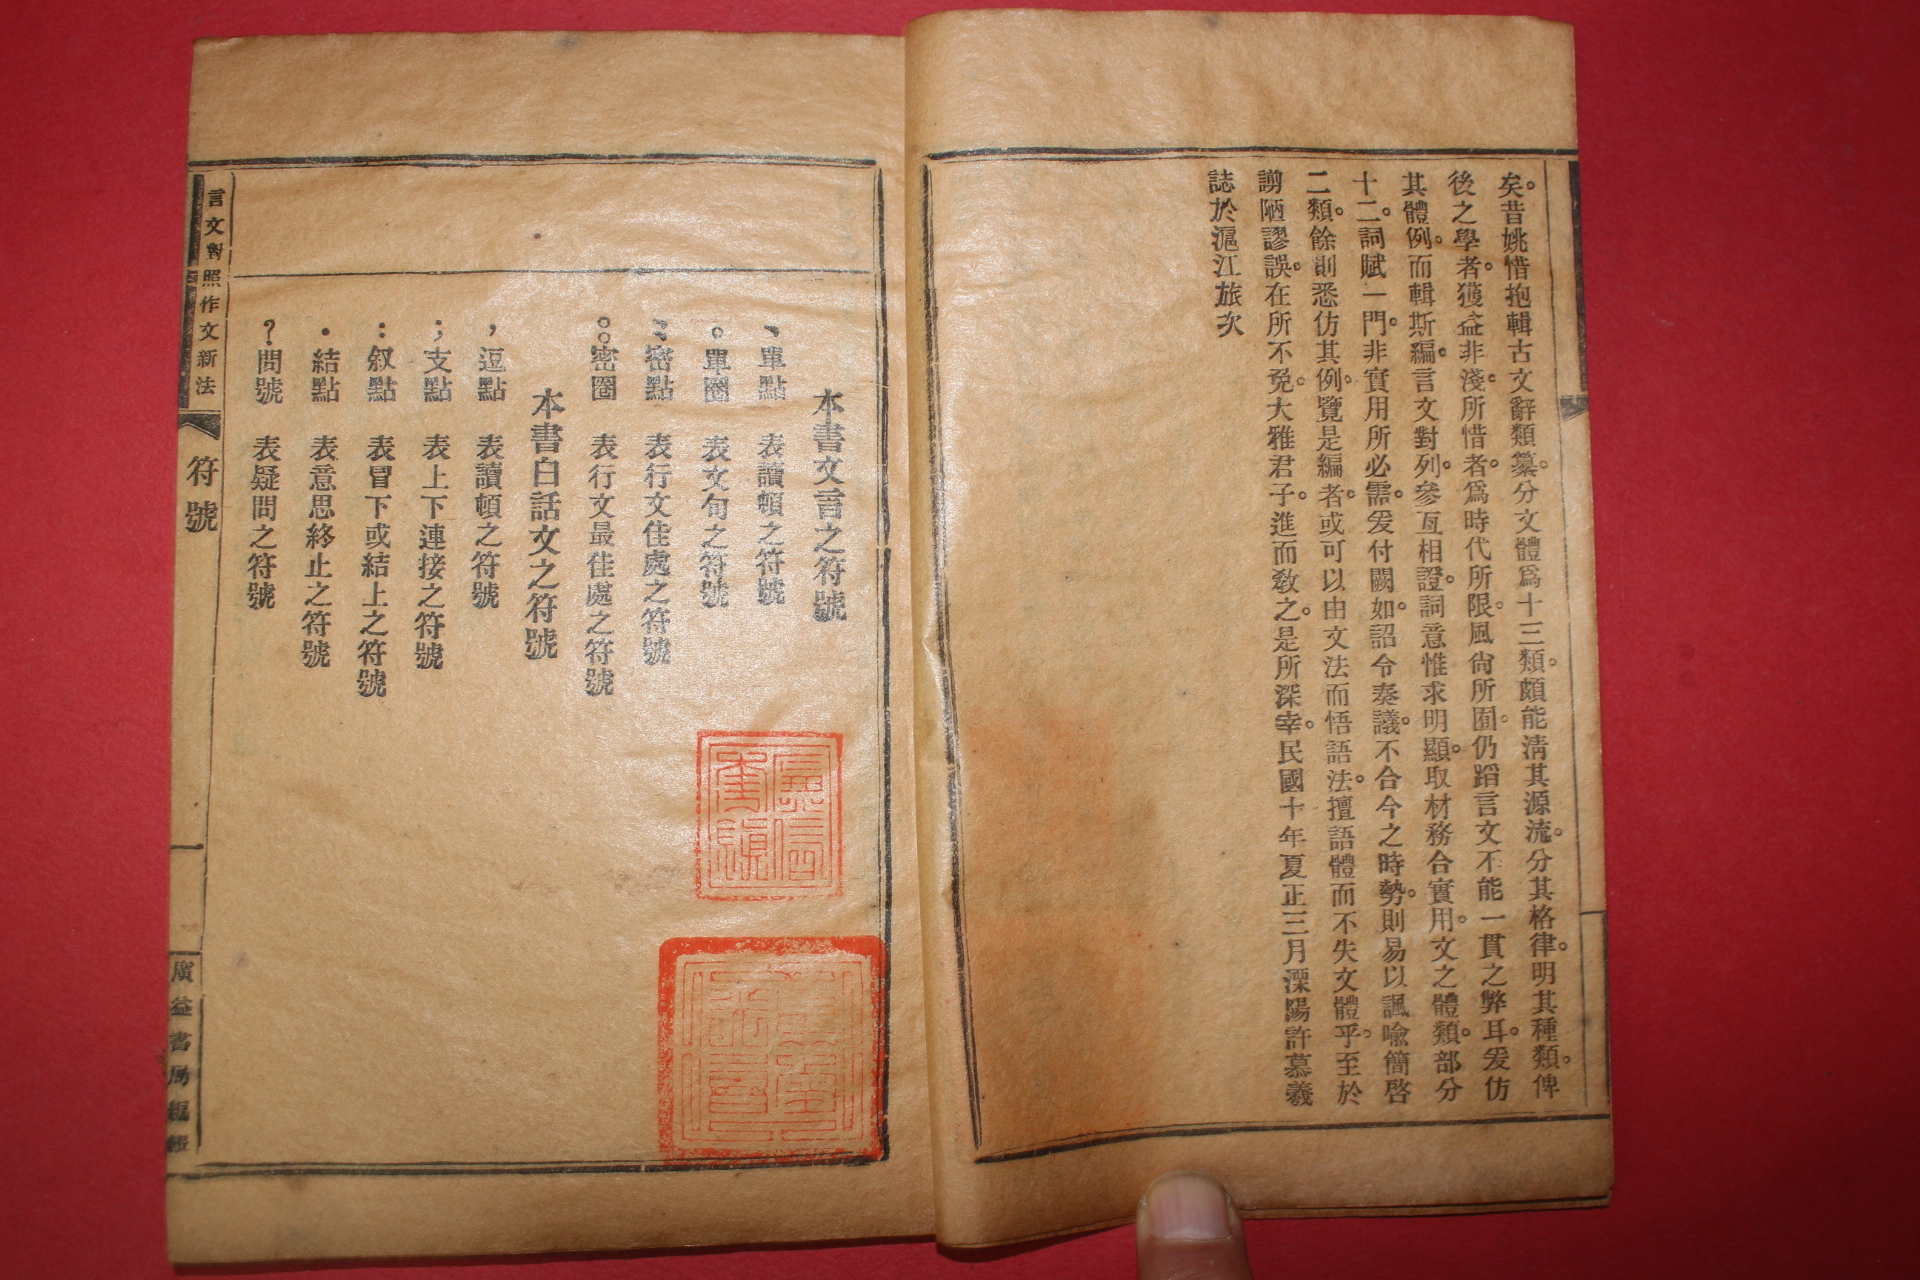 矣。昔姚惜抱輯古文辭類纂。分文體爲十三類。頗能淸其源流。分其格律。明其種類。俾
後之學者。獲益非淺。所惜者。爲時代所限。風尙所囿。仍蹈言文不能一貫之弊耳。爰仿
其體例。而輯斯編。言文對列。參互相證。詞意惟求明顯。取材務合實用。文之體類。部分
十二。詞賦一門。非實用所必需。爰付闕如。詔令奏議。不合今之時勢。則易以諷喩簡啓
二類。餘則悉仿其例。覽是編者。或可以由文法而悟語法。擅語體而不失文體乎。至於
謭陋謬誤。在所不免。大雅君子。進而敎之。是所深幸。民國十年夏正三月溧陽許慕羲
誌於滬江旅次
本書文言之符號
、單點　表讀頓之符號
。單圈　表文句之符號
、、密點　表行文佳處之符號
。。密圈　表行文最佳處之符號
本書白話文之符號
，逗點　表讀頓之符號
；支點　表上下連接之符號
：叙點　表冒下或結上之符號
．結點　表意思終止之符號
？問號　表疑問之符號
言文對照作文新法　符號　一　廣益書局編輯